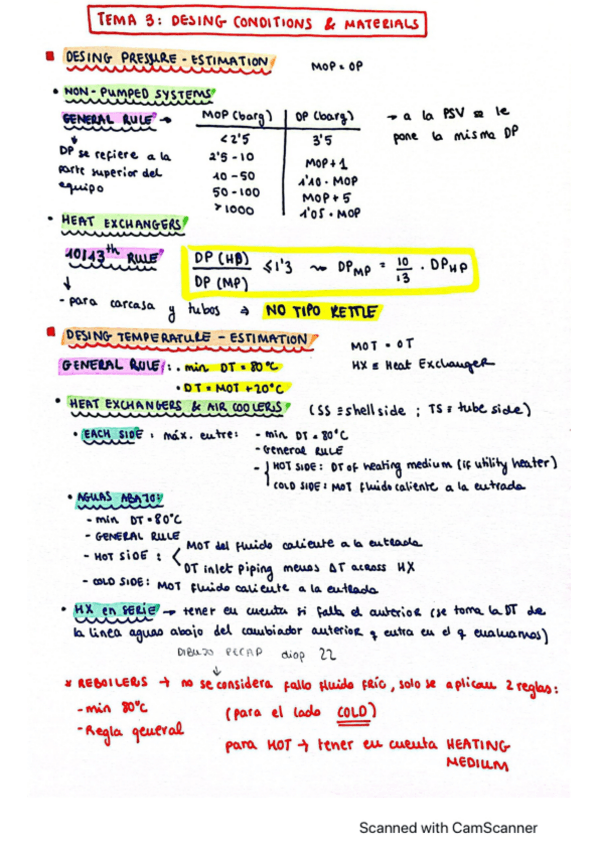 TEMA 3: DESING CONDITIONS & MATERIALS
DESING PRESSURE - ESTIMATION
MOP = OP
• NON-PUMPED SYSTEMS
GENERAL RULE →
DP se refiere a la
parte superior del
equipo
MOP (barg) DP (barg)
<2'5 3'5
2'5-10 MOP+1
10-50 1'10 · MOP
50-100 MOP+5
>1000 1'05 · MOP
→ a la PSV se le
pone la misma DP
• HEAT EXCHANGERS
10/13th RULE
DP (HP) / DP (MP) ≤ 1'3 ⇝ DP MP = 10/13 · DP HP
- para carcasa y tubos → NO TIPO KETTLE
DESING TEMPERATURE - ESTIMATION
MOT = OT
HX ≡ Heat Exchanger
GENERAL RULE: • min DT = 80°C
• DT = MOT + 20°C
• HEAT EXCHANGERS & AIR COOLERS (SS ≡ shell side ; TS ≡ tube side)
• EACH SIDE: máx. entre: - min DT = 80°C
- General RULE
- HOT SIDE: DT of heating medium (if utility heater)
COLD SIDE: MOT fluido caliente a la entrada
• AGUAS ABAJO:
- min DT = 80°C
- GENERAL RULE
- HOT SIDE: MOT del fluido caliente a la entrada
DT inlet piping menos ΔT across HX
- COLD SIDE: MOT fluido caliente a la entrada
• HX en SERIE → tener en cuenta si falla el anterior (se toma la DT de
la linea aguas abajo del cambiador anterior q entra en el q evaluamos)
DIBUJO RECAP diap 22
* REBOILERS → no se considera fallo fluido frío, solo se aplican 2 reglas:
- min 80°C
- Regla general
(para el lado COLD)
para HOT → tener en cuenta HEATING
MEDIUM
Scanned with CamScanner